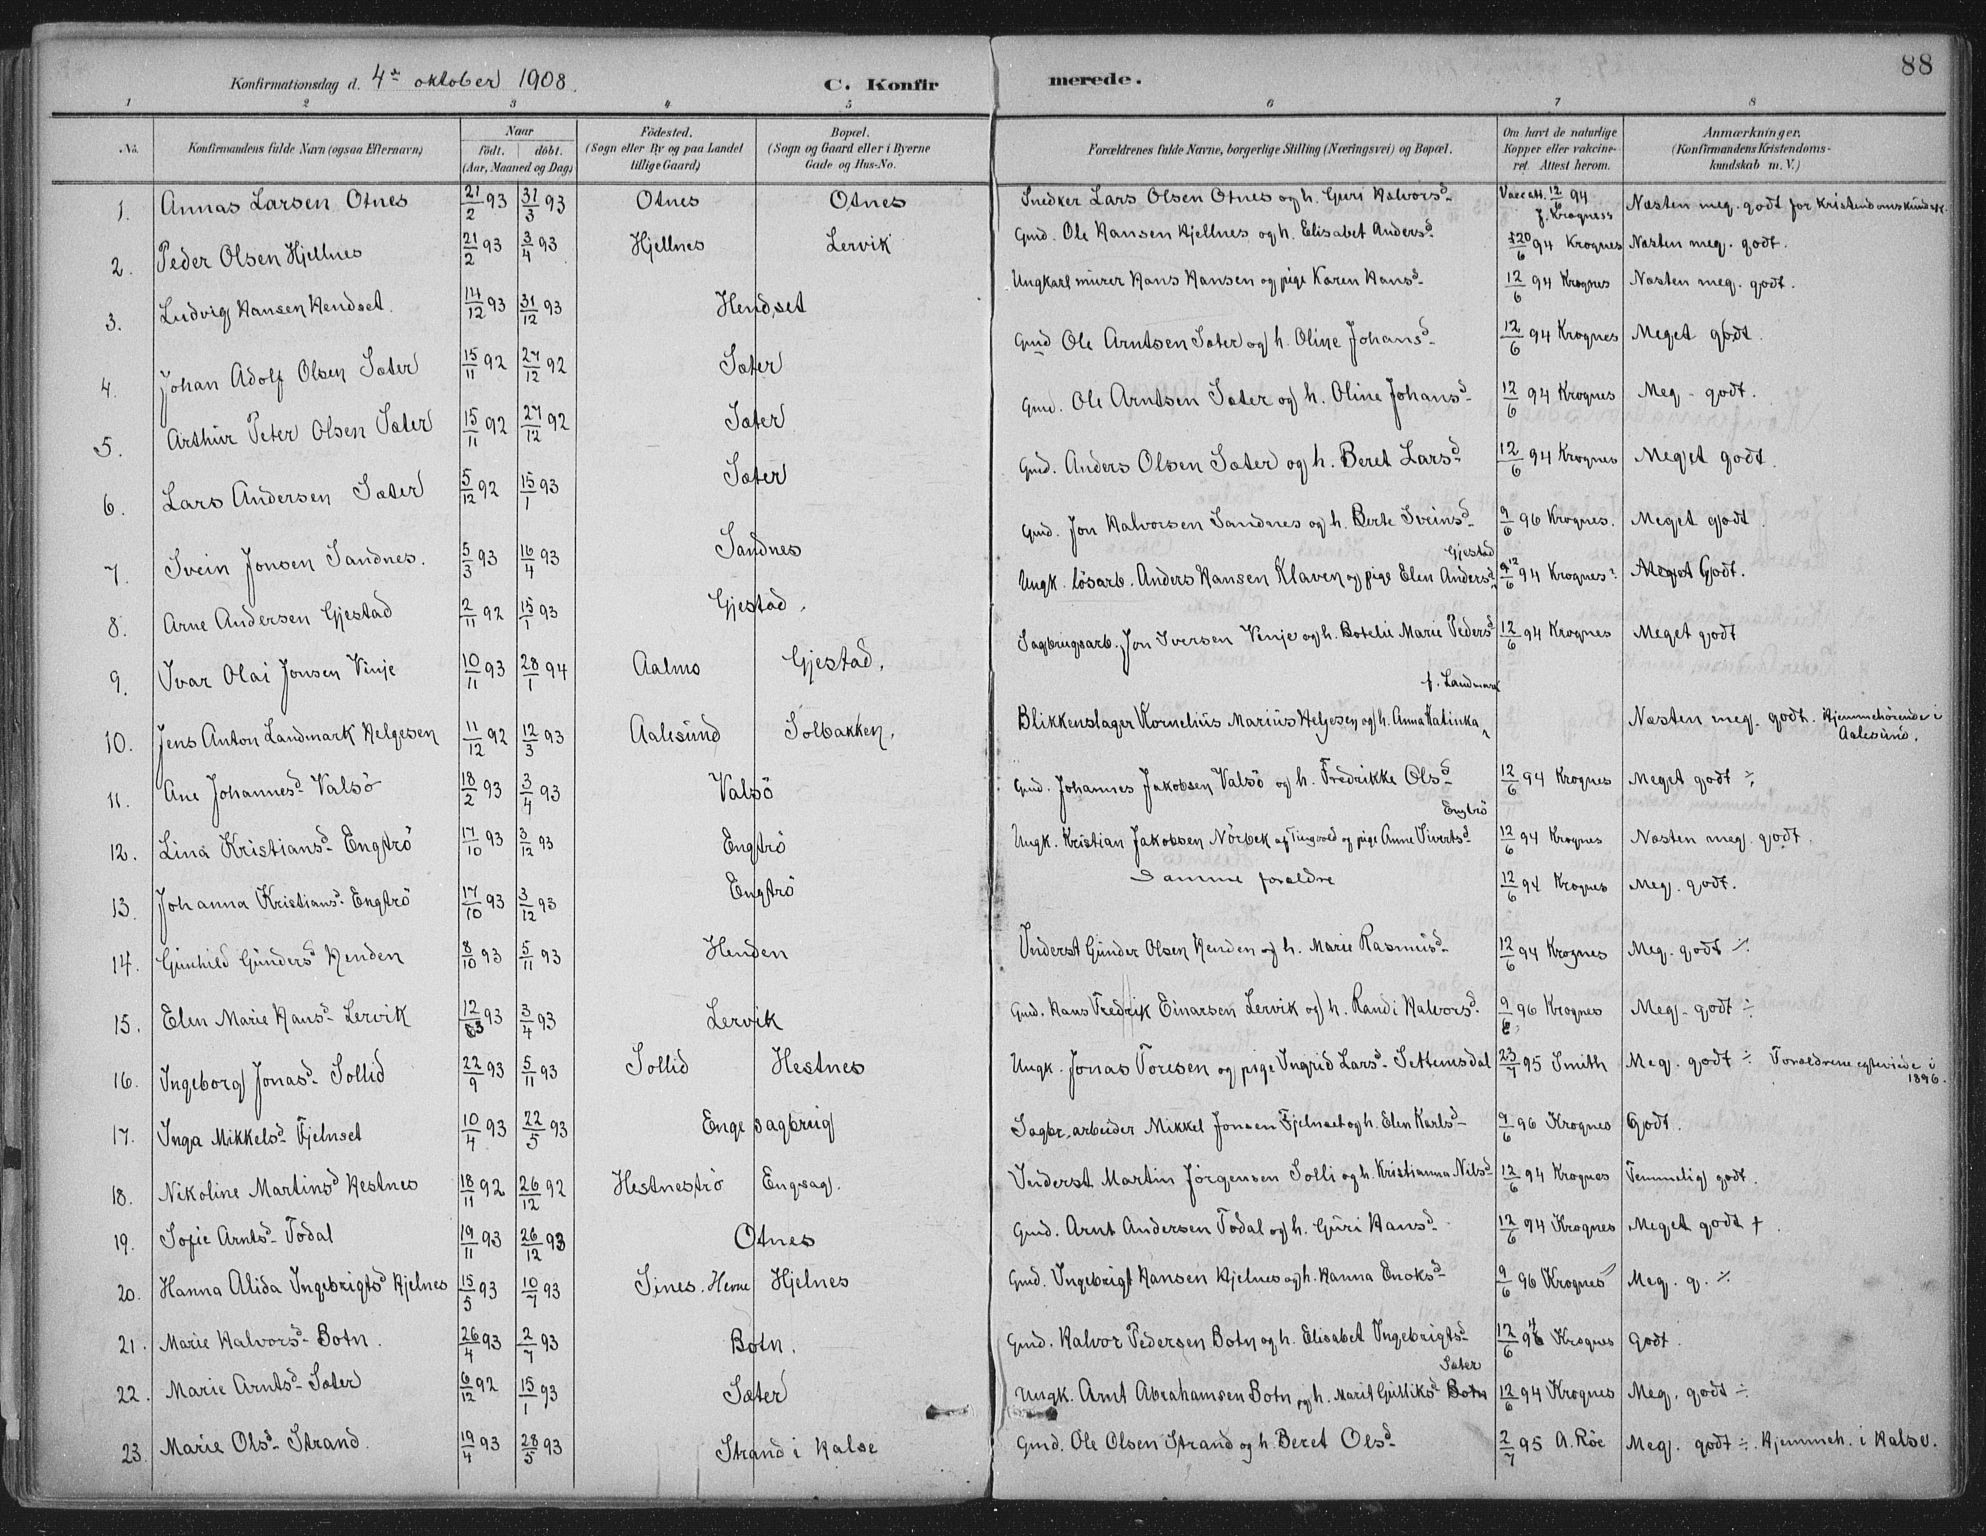 88
Konfirmationsdag d. 4de oktober 1908. C. Konfirmerede.
1 2 3 4 5 6 7 8
No. Konfirmandens fulde Navn (ogsaa Efternavn) Naar født. døbt. (Aar, Maaned og Dag) Fødested. (Sogn eller By og paa Landet tillige Gaard) Bopæl. (Sogn og Gaard eller i Byerne Gade og Hus-No. Forældrenes fulde Navne, borgerlige Stilling (Næringsvei) og Bopæl. Om havt de naturlige Kopper eller vaccineret. Attest herom. Anmærkninger. (Konfirmandens Kristendomskundskab m. V.)
1. Annas Larsen Otnes 21/2 93 31/3 93 Otnes Otnes Snedker Lars Olsen Otnes og h. Guri Halvorsd. Vacc att. 12/6 94 J. Krogness Næsten meg. godt for Kristendomskundsk.
2. Peder Olsen Hjellnes 21/2 93 3/4 93 Hjellnes Lervik Gmd. Ole Hansen Hjellnes og h. Elisabet Andersd. 20/6 94 Krognes Næsten meg. godt.
3. Ludvig Hansen Hendset. 14/12 93 31/12 93 Hendset Ungkarl murer Hans Hansen og pige Karen Hansd. 12/6 94 Krognes Næsten meg. godt.
4. Johan Adolf Olsen Sæter 15/11 92 27/12 92 Sæter Gmd Ole Arntsen Sæter og h. Oline Johansd. 12/6 94 Krognes Meget godt.
5. Arthur Peter Olsen Sæter 15/11 92 27/12 92 Sæter Gmd. Ole Arntsen Sæter og h. Oline Johansd. 12/6 94 Krognes Meg. godt.
6. Lars Andersen Sæter 5/12 92 15/1 93 Sæter Gmd. Anders Olsen Sæter og h. Beret Larsd. 12/6 94 Krognes Meget godt.
7. Svein Jonsen Sandnes. 5/3 93 16/4 93 Sandnes Gmd. Jon Halvorsen Sandnes og h. Berte Sveinsd. 9/6 96 Krognes. Meget godt.
8. Arne Andersen Gjestad 2/11 92 15/1 93 Gjestad. Ungk. løsarb. Anders Hansen Klaven og pige Elen Andersd. Gjestad 12/6 94 Krognes. Meget Godt.
9. Ivar Olai Jonsen Vinje 10/11 93 28/1 94 Aalmo Gjestad. Sagbrugsarb. Jon Iversen Vinje og h. Botelie Marie Pedersd. 12/6 94 Krognes Meget godt
10. Jens Anton Landmark Helgesen 11/12 92 12/3 93 Aalesund Solbakken. Blikkenslager Kornelius Marius Helgesen og h. Anna Katinka f. Landmark Næsten meg. godt. Hjemmehørende i Aalesund.
11. Ane Johannesd. Valsø 18/2 93 3/4 93 Valsø Gmd. Johannes Jakobsen Valsø og h. Fredrikke Olsd. 12/6 94 Krognes Meget godt ÷
12. Lina Kristiansd. Engtrø 17/10 93 3/12 93 Engtrø Ungk. Kristian Jakobsen Nørbek af Tingvold og pige Anne Sivertsd. Engtrø 12/6 94 Krognes Næsten meg. godt.
13. Johanna Kristiansd. Engtrø 17/10 93 3/12 93 Engtrø Samme forældre 12/6 94 Krognes Meg. godt.
14. Gunhild Gundersd. Henden 8/10 93 5/11 93 Henden Inderst Gunder Olsen Henden og h. Marie Rasmusd. 12/6 94 Krognes Meg. godt ÷
15. Elen Marie Hansd. Lervik 12/3 93 3/4 93 Lervik Gmd. Hans Fredrik Einarsen Lervik og h. Randi Halvorsd. 9/6 96 Krognes Meg. godt ÷
16. Ingeborg Jonasd. Sollid 22/9 93 5/11 93 Sollid Hestnes Ungk. Jonas Toresen og pige Ingrid Larsd. Settemsdal 23/7 95 Smith Meg. godt ÷ Forældrene egteviede i 1896.
17. Inga Mikkelsd. Fjelnset 10/4 93 22/5 93 Enge sagbrug Sagbr. arbeider Mikkel Jonsen Fjelnset og h. Elen Karlsd. 9/6 96 Krognes Godt.
18. Nikoline Martinsd. Hestnes 18/11 92 26/12 92 Hestnestrø Engsag. Inderst. Martin Jørgensen Solli og h. Kristianna Nilsd. 12/6 94 Krognes Temmelig godt.
19. Sofie Arntsd. Todal 19/11 93 26/12 93 Otnes Gmd. Arnt Andersen Todal og h. Guri Hansd. 12/6 94 Krognes Meget godt +.
20. Hanna Alida Ingebrigtsd. Hjelnes 15/5 93 10/7 93 Sines. Hevne Hjelnes Gmd. Ingebrigt Hansen Hjelnes og h. Hanna Enoksd. 9/6 96 Krognes Meg. g. ÷
21. Marie Halvorsd. Botn. 26/4 93 2/7 93 Botn. Gmd. Halvor Pedersen Botn og h. Elisabet Ingebrigtsd. 12/6 94 Krognes Godt.
22. Marie Arntsd. Sæter 6/12 92 15/1 93 Sæter Ungk. Arnt Abrahamsen Botn og h. Marit Gulliksd. Botn Sæter 12/6 94 Krognes Meg. godt ÷.
23. Marie Olsd. Strand. 19/4 93 28/5 93 Strand i Halse Gmd. Ole Olsen Strand og h. Beret Olsd. 2/7 95 A. Røe Meg. godt ÷. Hjemmeh. i Halse.